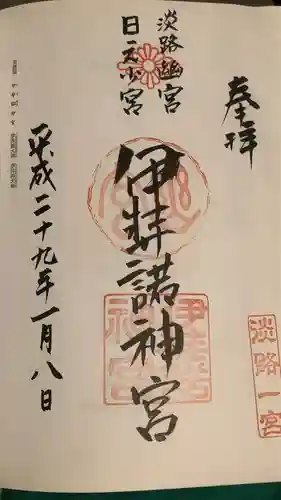 奉拝
淡路幽宮
日之少宮
伊弉諾神宮
淡路一宮
平成二十九年一月八日